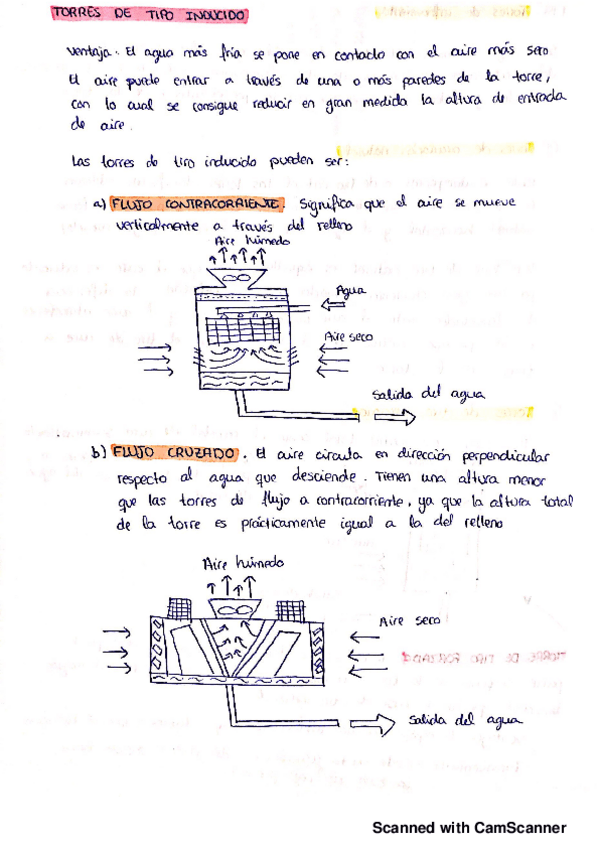 TORRES DE TIRO INDUCIDO
Ventaja. El agua más fría se pone en contacto con el aire más seco
El aire puede entrar a través de una o más paredes de la torre,
con lo cual se consigue reducir en gran medida la altura de entrada
de aire.
Las torres de tiro inducido pueden ser:
a) FLUJO CONTRACORRIENTE. Significa que el aire se mueve
verticalmente a través del relleno
Aire húmedo
Agua
Aire seco
Salida del agua
b) FLUJO CRUZADO. El aire circula en dirección perpendicular
respecto al agua que desciende. Tienen una altura menor
que las torres de flujo a contracorriente, ya que la altura total
de la torre es prácticamente igual a la del relleno
Aire húmedo
Aire seco
Salida del agua
Scanned with CamScanner